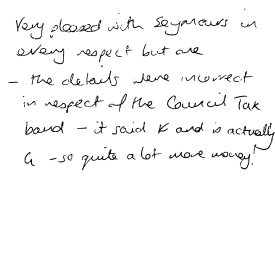 Very pleased with Seymours in
every respect but one
- the details were incorrect
in respect of the Council Tax
band - it said K and is actually
G - so quite a lot more money!